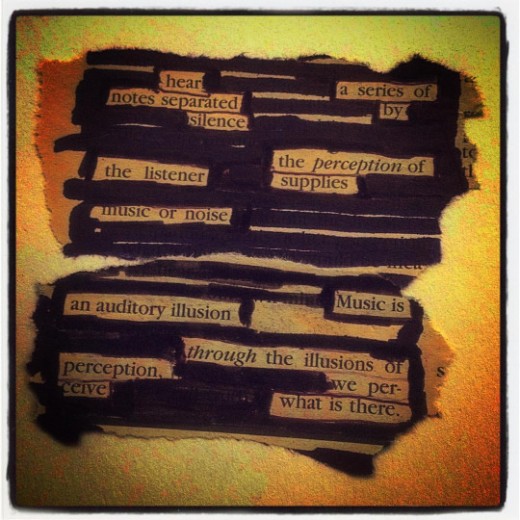 hear a series of
notes separated by
silence
the listener the perception of
supplies
music or noise
an auditory illusion Music is
through the illusions of
perception, we per-
ceive what is there.